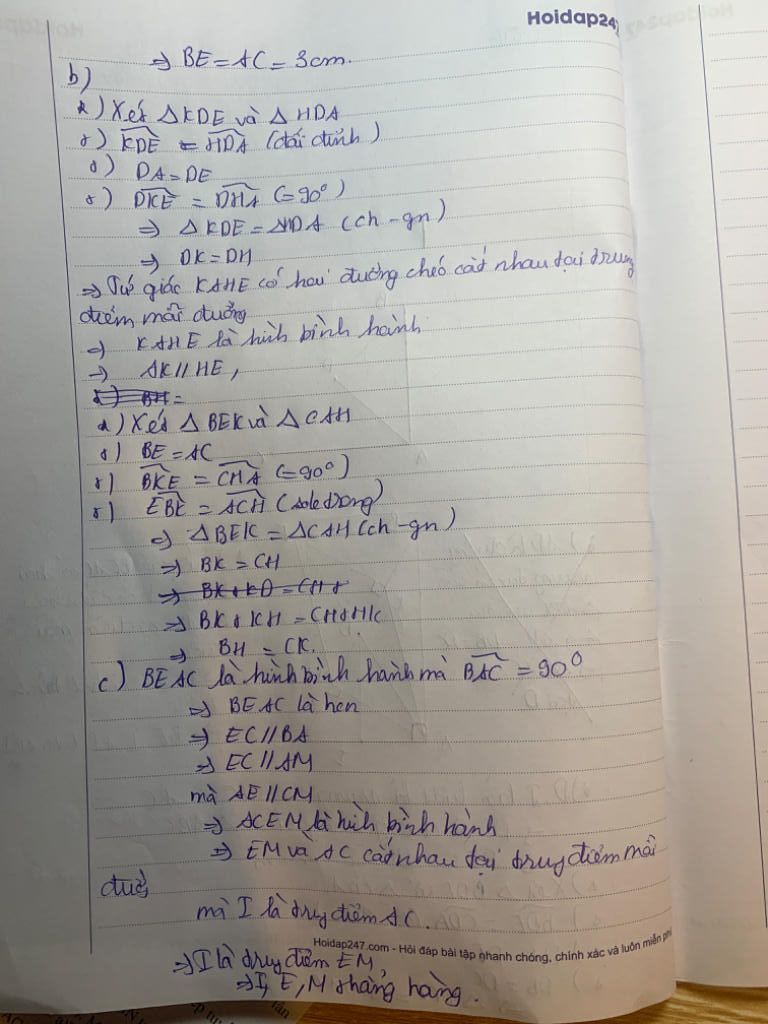 Hoidap247
⇒ BE = AC = 3cm.
b)
*) Xét △KDE và △HDA
+) KDE = HDA (đối đỉnh)
+) DA = DE
+) DKE = DHA (= 90°)
⇒ △KDE = △HDA (ch - gn)
⇒ DK = DH
⇒ Tứ giác KAHE có hai đường chéo cắt nhau tại trung
điểm mỗi đường
⇒ KAHE là hình bình hành
⇒ AK // HE,
BH =
*) Xét △BEK và △CAH
+) BE = AC
+) BKE = CHA (= 90°)
+) EBE = ACH (sole trong)
⇒ △BEK = △CAH (ch - gn)
⇒ BK = CH
⇒ BK + KD = CH +
⇒ BK + KH = CH + HK
⇒ BH = CK.
c) BEAC là hình bình hành mà BAC = 90°
⇒ BEAC là hcn
⇒ EC // BA
⇒ EC // AM
mà AE // CM
⇒ ACEM là hình bình hành
⇒ EM và AC cắt nhau tại trung điểm mỗi
đường
mà I là trung điểm AC.
Hoidap247.com - Hỏi đáp bài tập nhanh chóng, chính xác và luôn miễn phí
⇒ I là trung điểm EM,
⇒ I, E, M thẳng hàng.